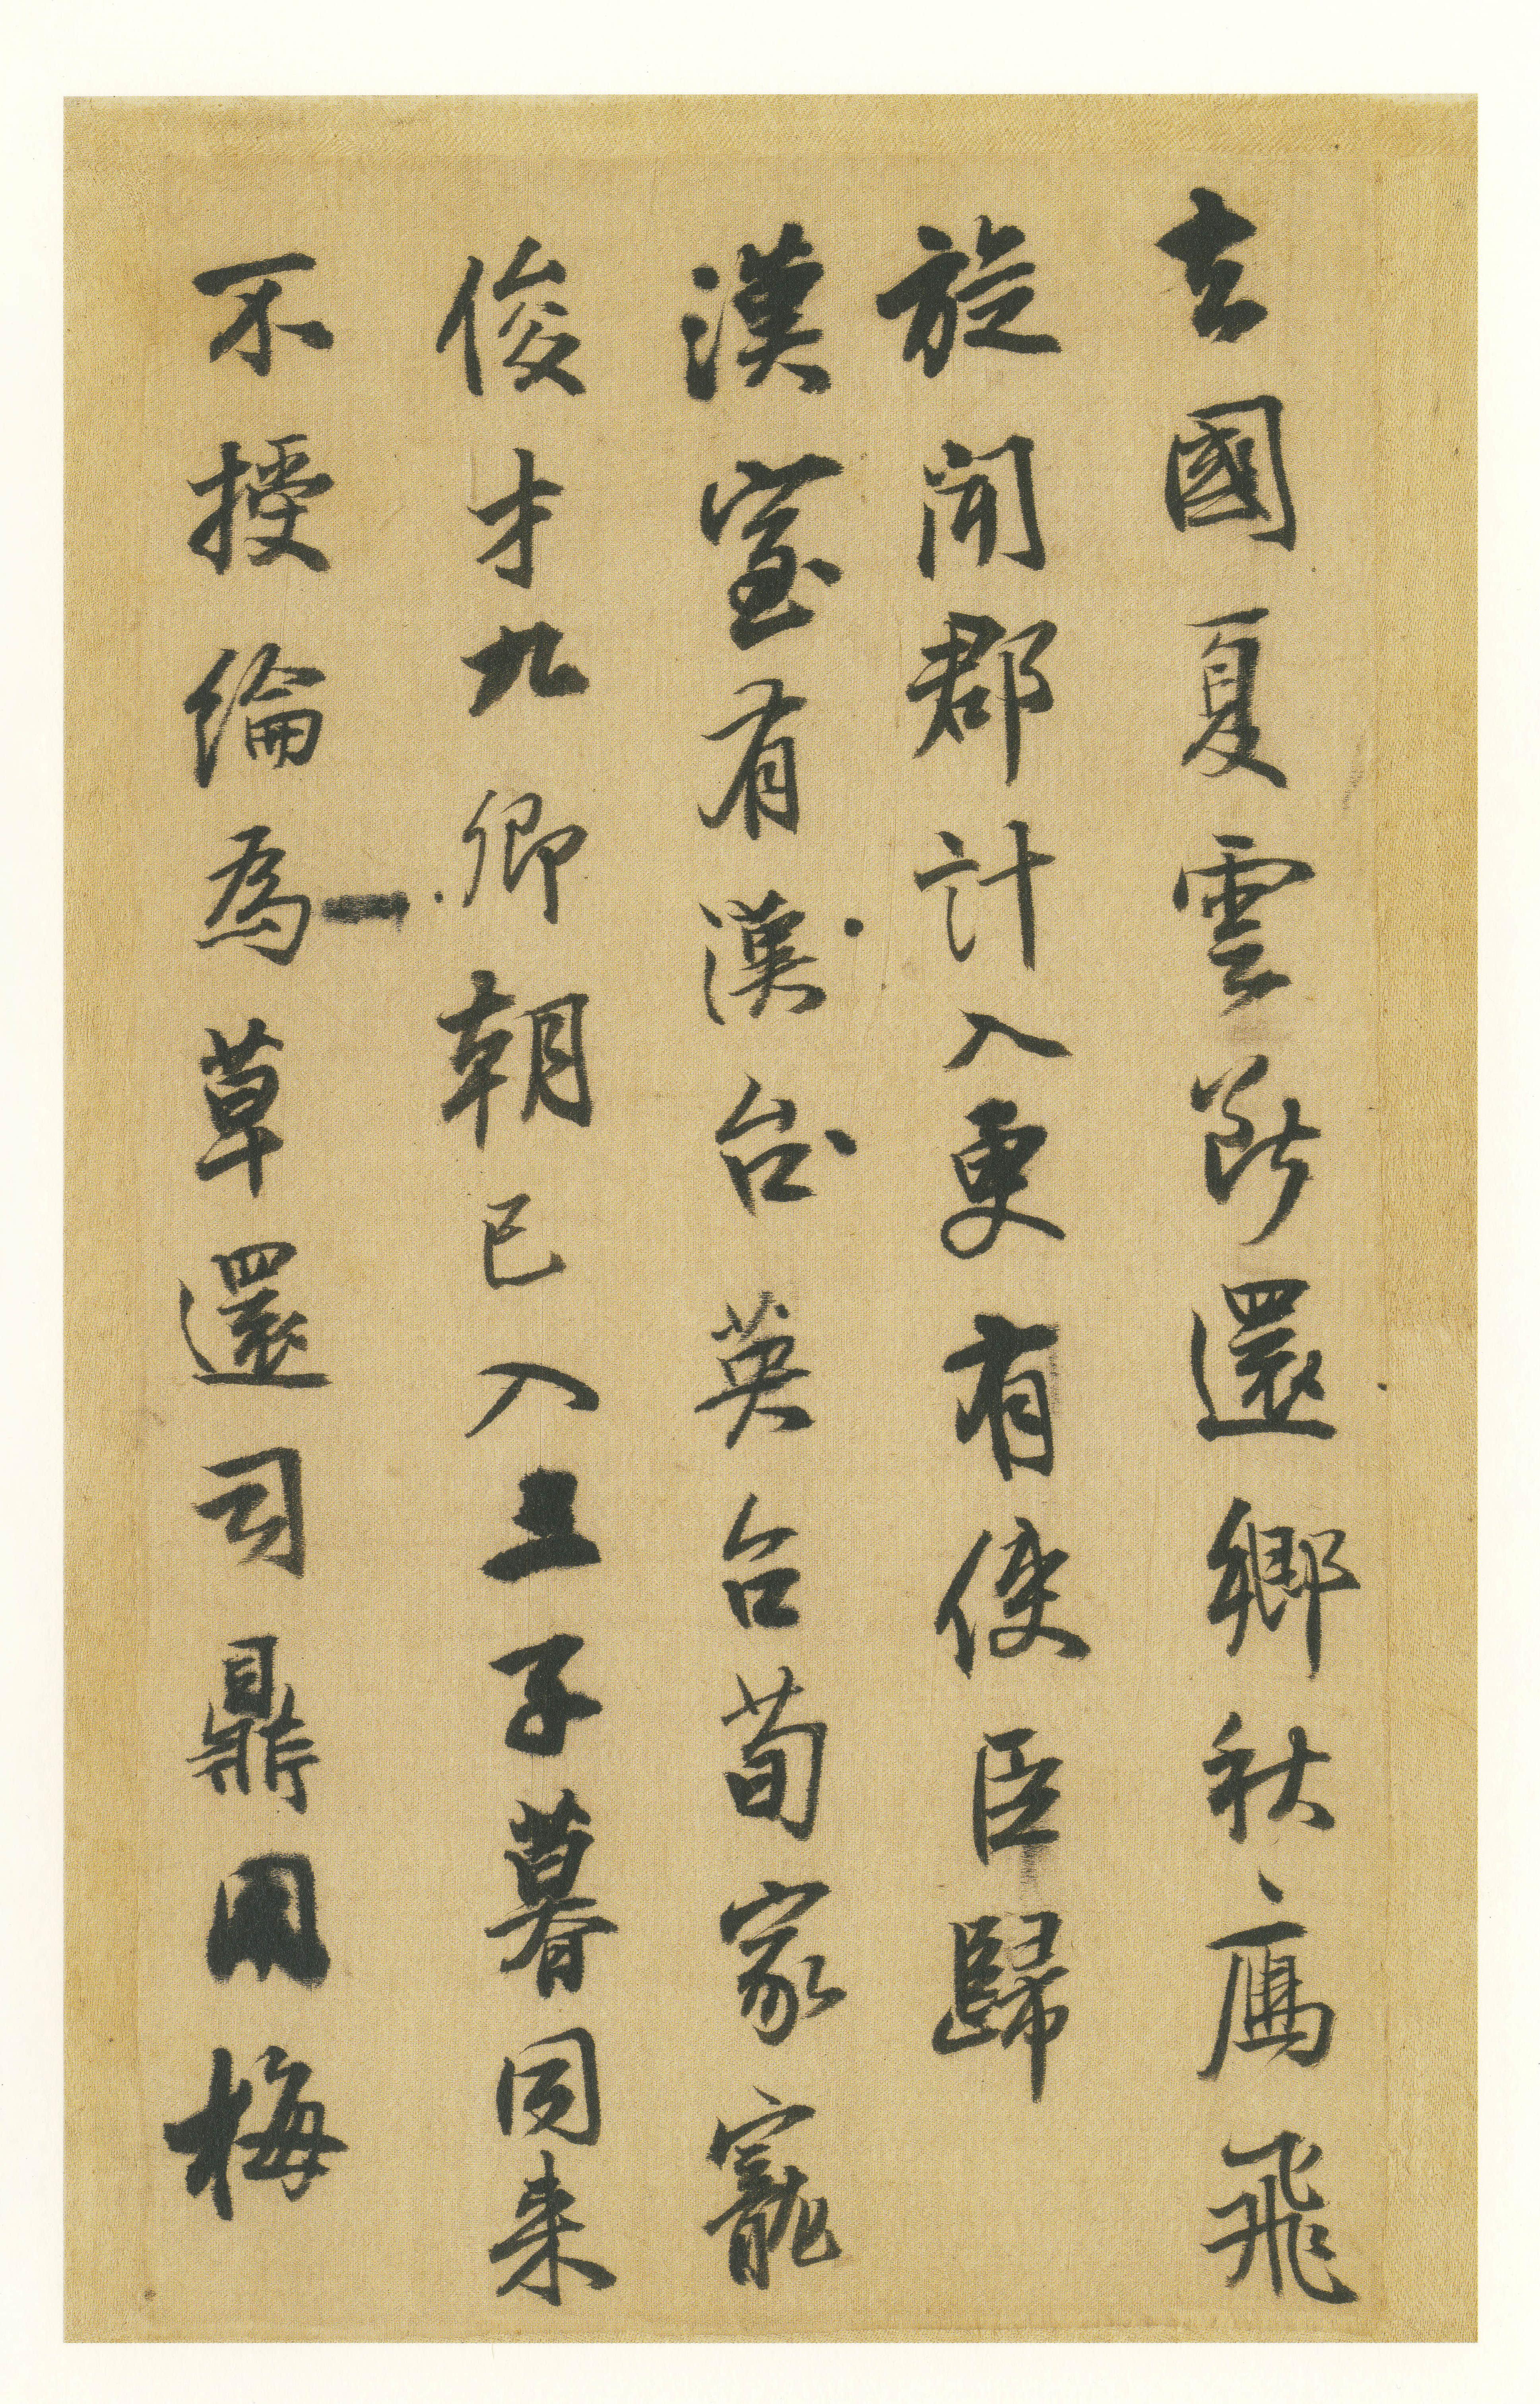 去國夏雲断還鄉秋鴈飛
旋聞郡計入更有使臣歸
漢室有漢台英台荀家寵
俊才九卿朝已入三子暮同来
不授綸為草還司鼎用梅